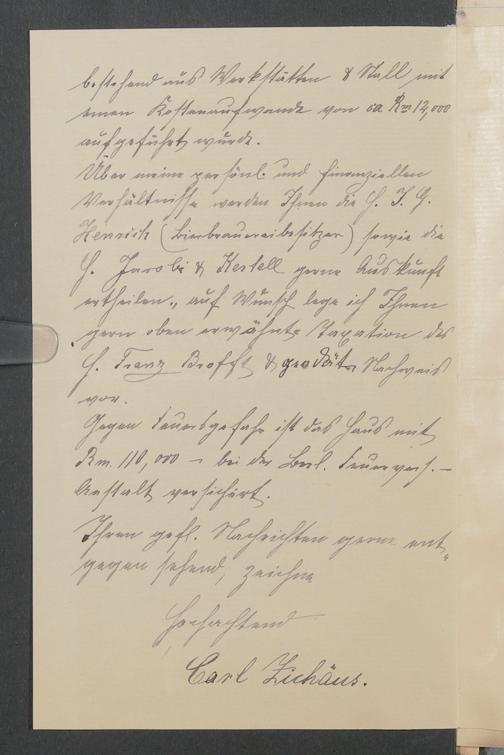 bestehend aus Werkstätten & Stall mit
einem Kostenaufwande von ca Rm 12,000
aufgeführt wurde.
Über meine persönl. und finanziellen
Verhältnisse werden Ihnen die H. J. G.
Henrich (Bierbrauereibesitzer) sowie die
H. Jacobi & Kertell gerne Auskunft
ertheilen, auf Wunsch lege ich Ihnen
gern oben erwähnte Taxation des
H. Franz & geodät. Nachweis
vor.
Gegen Feuersgefahr ist das Haus mit
Rm. 110,000 – bei der Feuervers. –
Anstalt versichert.
Ihren gefl. Nachrichten gerne ent-
gegen sehend, zeichne
Hochachtend
Carl Zichäus.